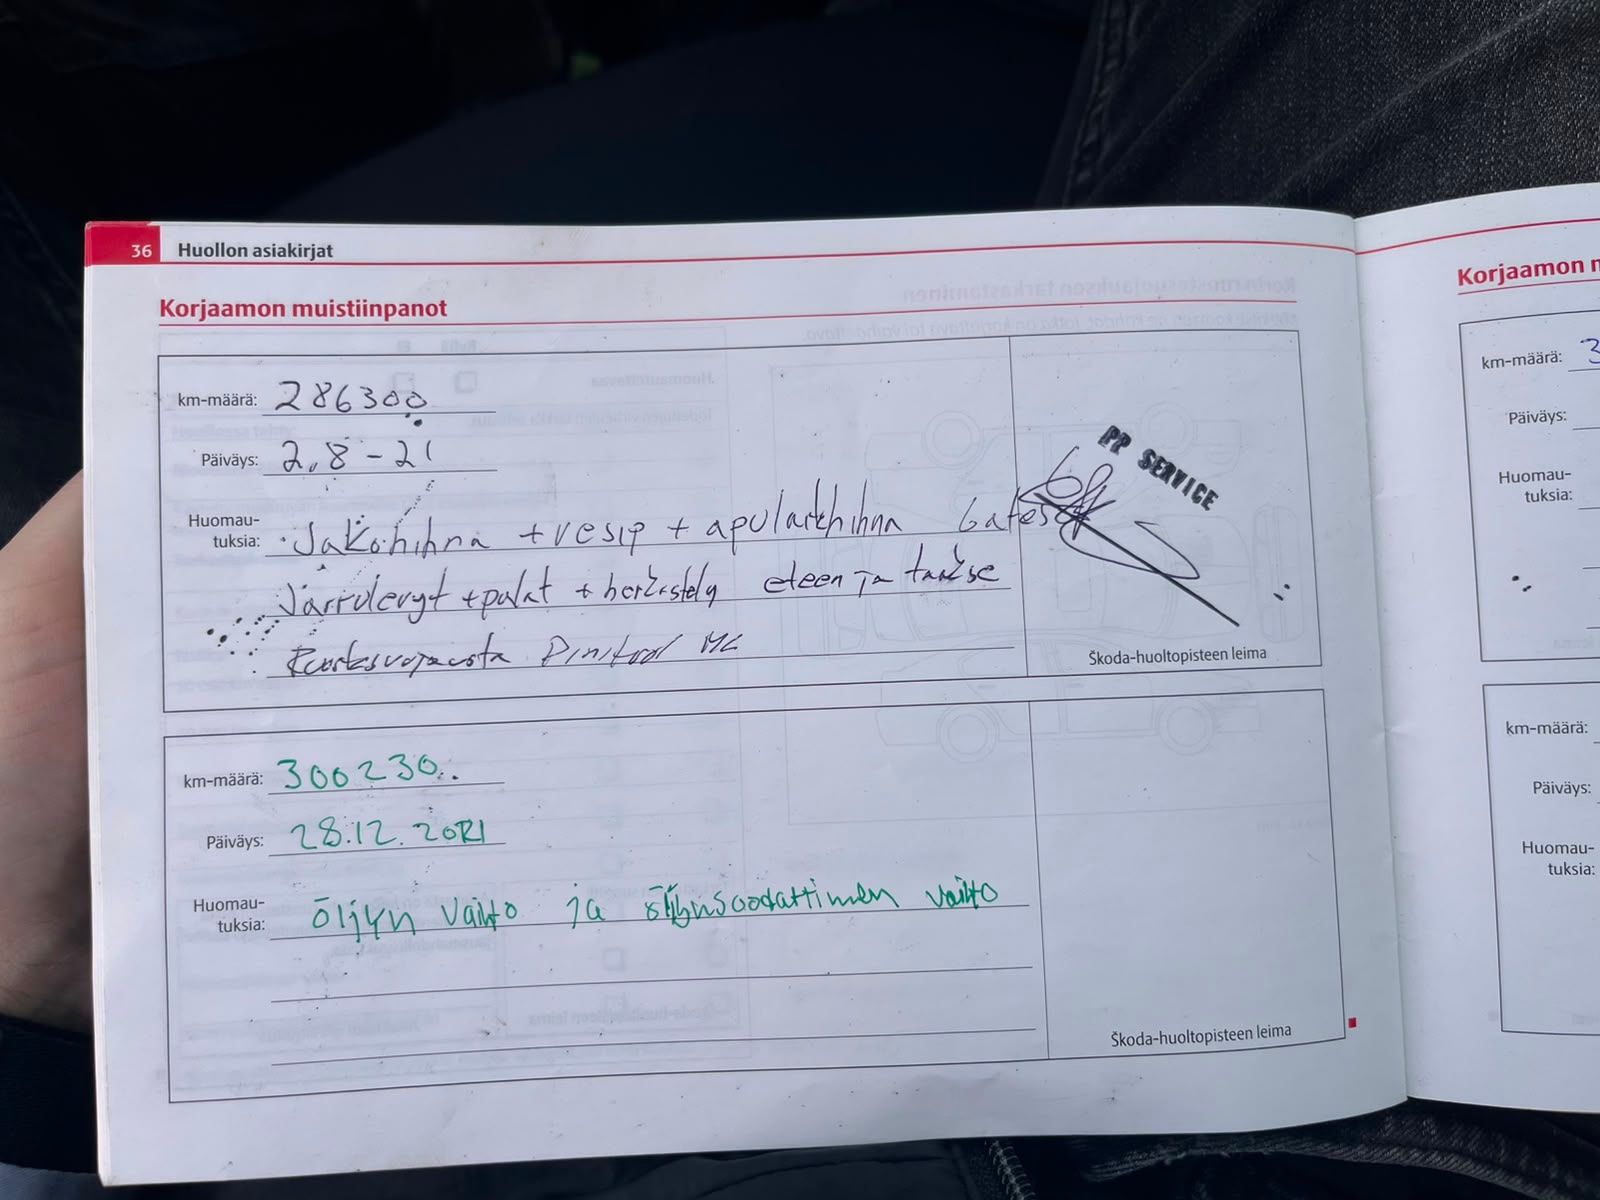 36 Huollon asiakirjat
Korjaamon muistiinpanot
km-määrä: 286300
Päiväys: 2.8-21
Huomau-
tuksia: Jakohihna + vesip + apulaitehihna Gates
Jarrulevyt + palat + herkistely eteen ja taakse
Ruostesuojausta Dinitrol ML
PP SERVICE
Škoda-huoltopisteen leima
km-määrä: 300230
Päiväys: 28.12.2021
Huomau-
tuksia: öljyn vaihto ja öljynsuodattimen vaihto
Škoda-huoltopisteen leima
Korjaamon
km-määrä: 3
Päiväys:
Huomau-
tuksia:
km-määrä:
Päiväys:
Huomau-
tuksia: